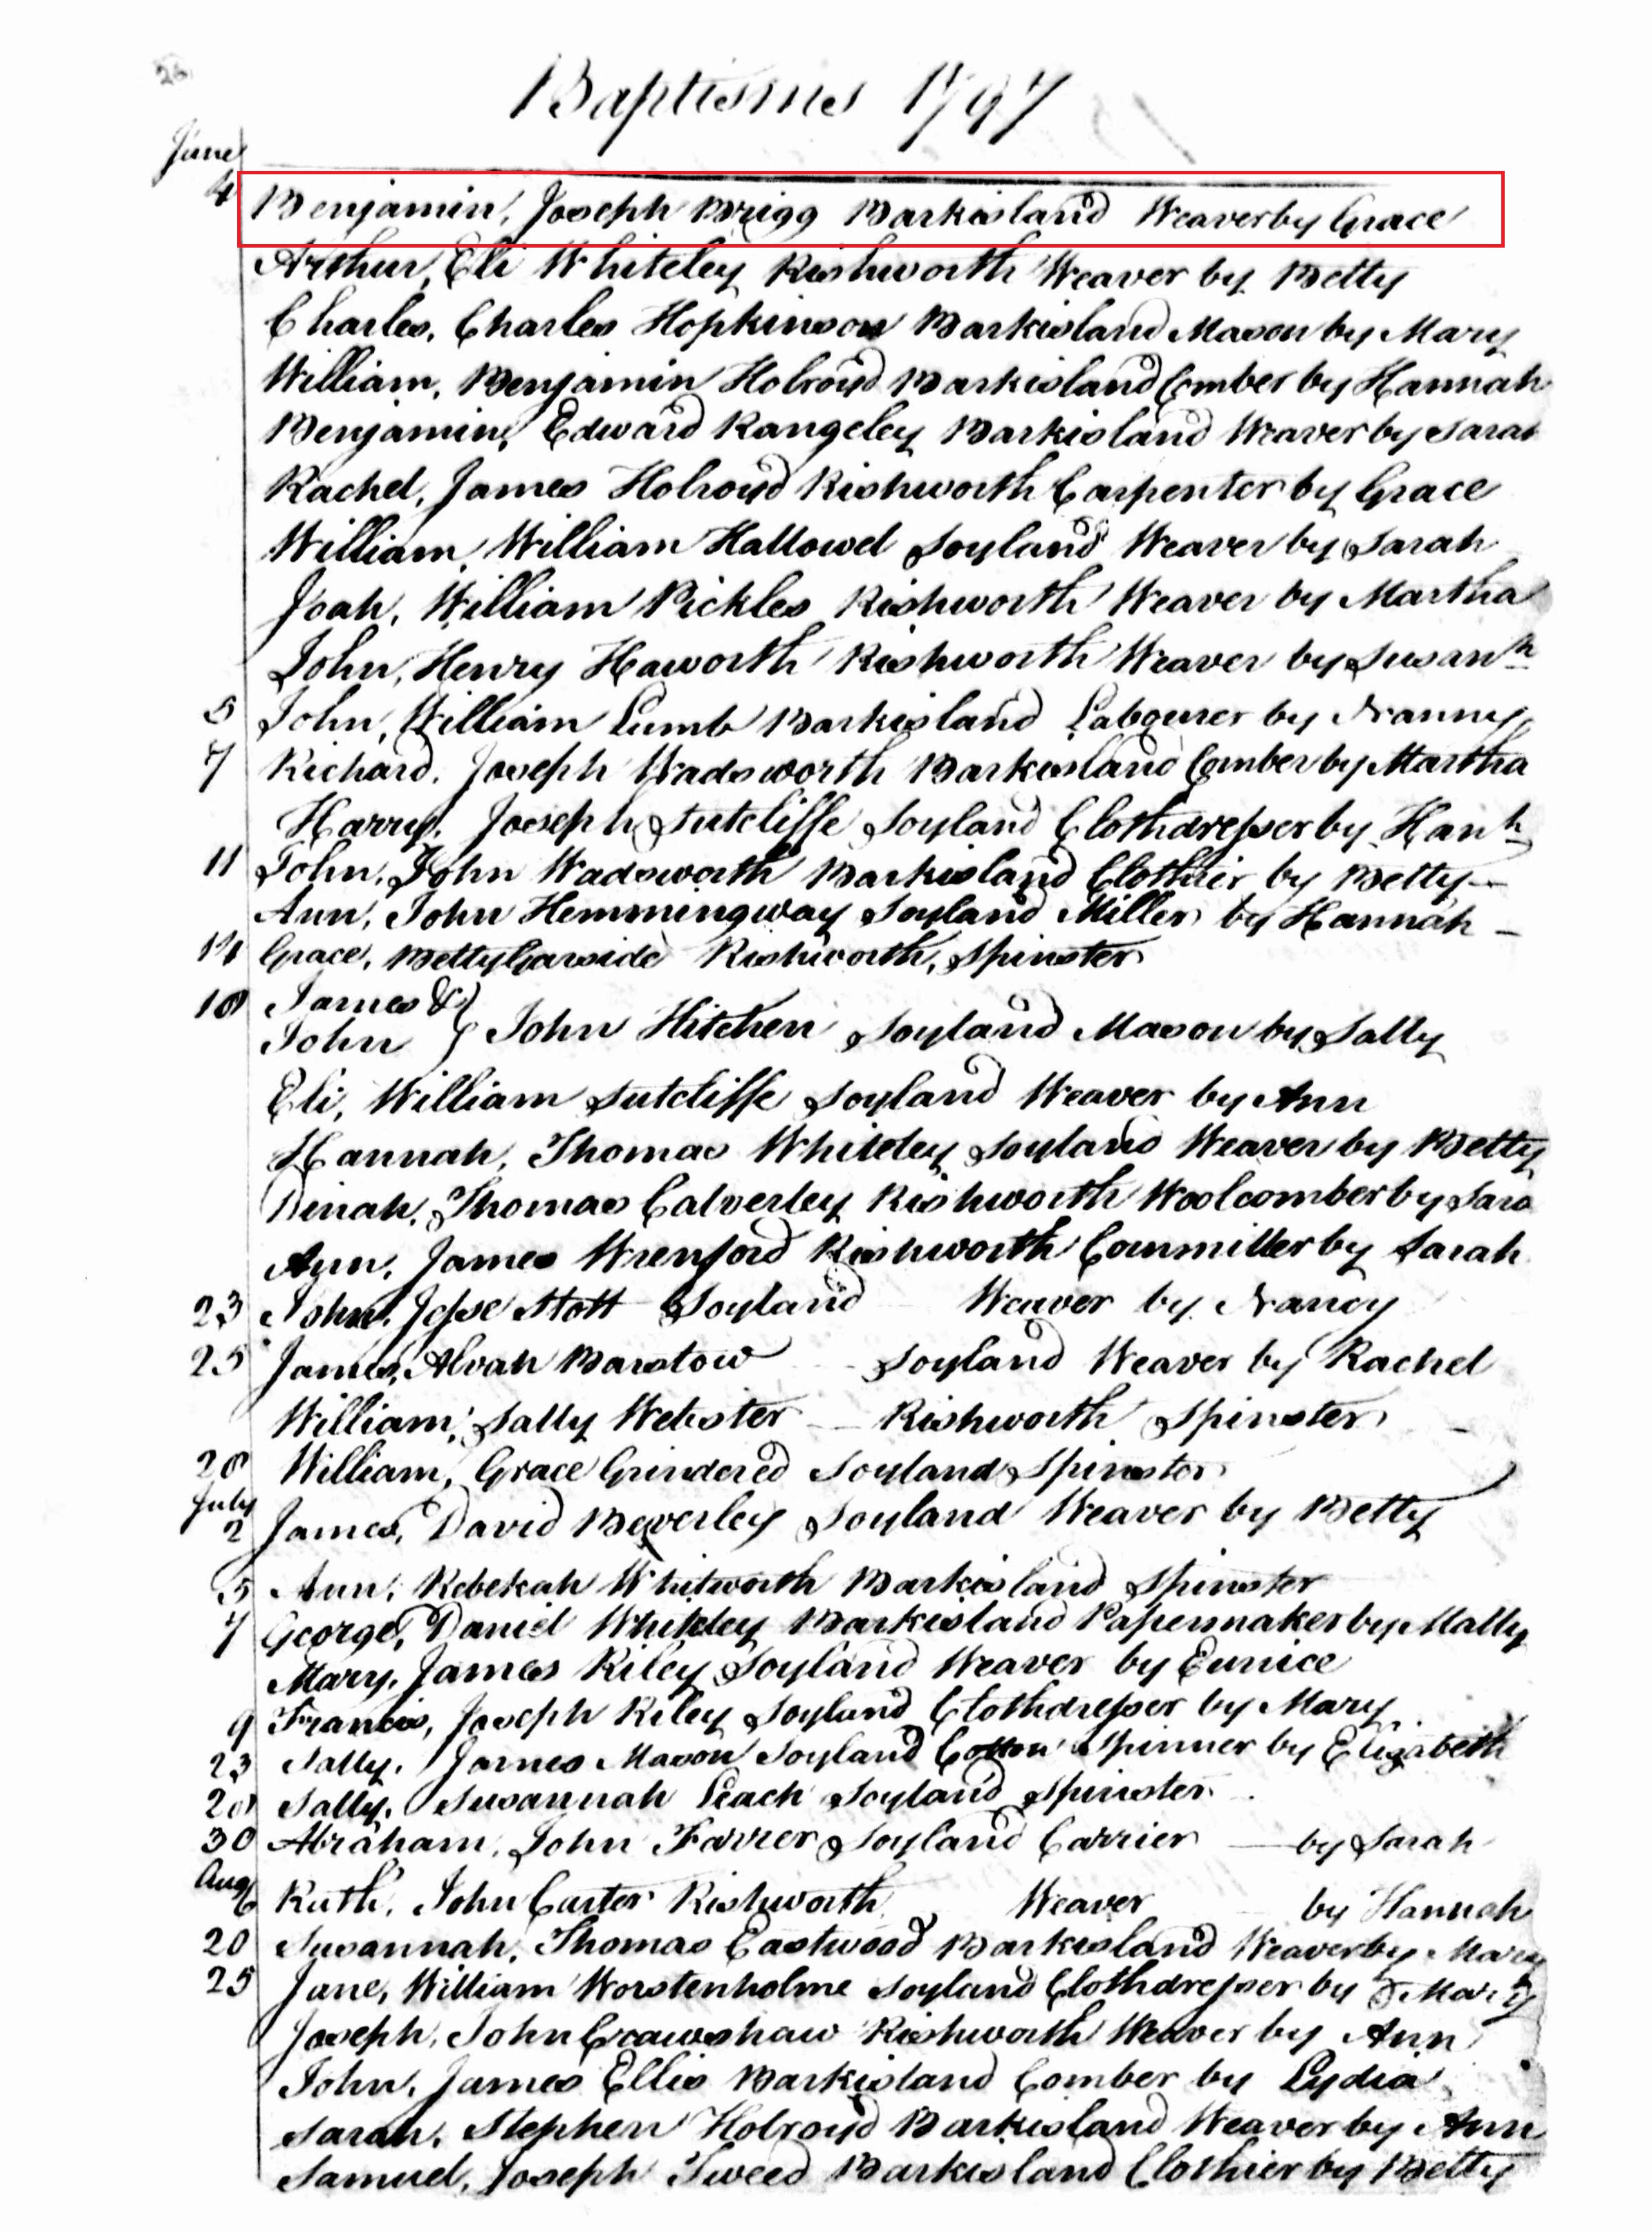 26
Baptisms 1797
June
4 Benjamin, Joseph Brigg Barkisland Weaver by Grace
Arthur, Eli Whiteley Rishworth Weaver by Betty
Charles, Charles Hopkinson Barkisland Mason by Mary
William, Benjamin Holroyd Barkisland Comber by Hannah
Benjamin, Edward Rangeley Barkisland Weaver by Sarah
Rachel, James Holroyd Rishworth Carpenter by Grace
William, William Hallowel Soyland Weaver by Sarah
Joah, William Pickles Rishworth Weaver by Martha
John, Henry Haworth Rishworth Weaver by Susanh
5 John, William Lumb Barkisland Labourer by Nanny
7 Richard, Joseph Wadsworth Barkisland Comber by Martha
Harry, Joseph Sutcliffe Soyland Clothdresser by Hanh
11 John, John Wadsworth Barkisland Clothier by Betty —
Ann, John Hemmingway Soyland Miller by Hannah —
14 Grace, Betty Garside Rishworth, Spinster
18 James &
John } John Hitchen Soyland Mason by Sally
Eli, William Sutcliffe Soyland Weaver by Ann
Hannah, Thomas Whiteley Soyland Weaver by Betty
Dinah, Thomas Calverley Rishworth Woolcomber by Sara
Ann, James Wrenford Rishworth Cornmiller by Sarah
23 John, Jesse Stott Soyland Weaver by Nancy
25 James, Alvah Barstow Soyland Weaver by Rachel
William, Sally Webster Rishworth Spinster
28 William, Grace Grindered Soyland Spinster
July
2 James, David Beverley Soyland Weaver by Betty
5 Ann, Rebekah Whitworth Barkisland Spinster
7 George, Daniel Whiteley Barkisland Papermaker by Mally
Mary, James Riley Soyland Weaver by Eunice
9 Francis, Joseph Riley Soyland Clothdresser by Mary
23 Sally, James Mason Soyland Cotton Spinner by Elizabeth
28 Sally, Susannah Leach Soyland Spinster
30 Abraham, John Farrer Soyland Carrier — by Sarah
Aug
6 Ruth, John Carter Rishworth Weaver by Hannah
20 Susannah, Thomas Eastwood Barkisland Weaver by Mary
25 Jane, William Worstenholme Soyland Clothdresser by Mary
Joseph, John Crawshaw Rishworth Weaver by Ann
John, James Ellis Barkisland Comber by Lydia
Sarah, Stephen Holroyd Barkisland Weaver by Ann
Samuel, Joseph Tweed Barkisland Clothier by Betty